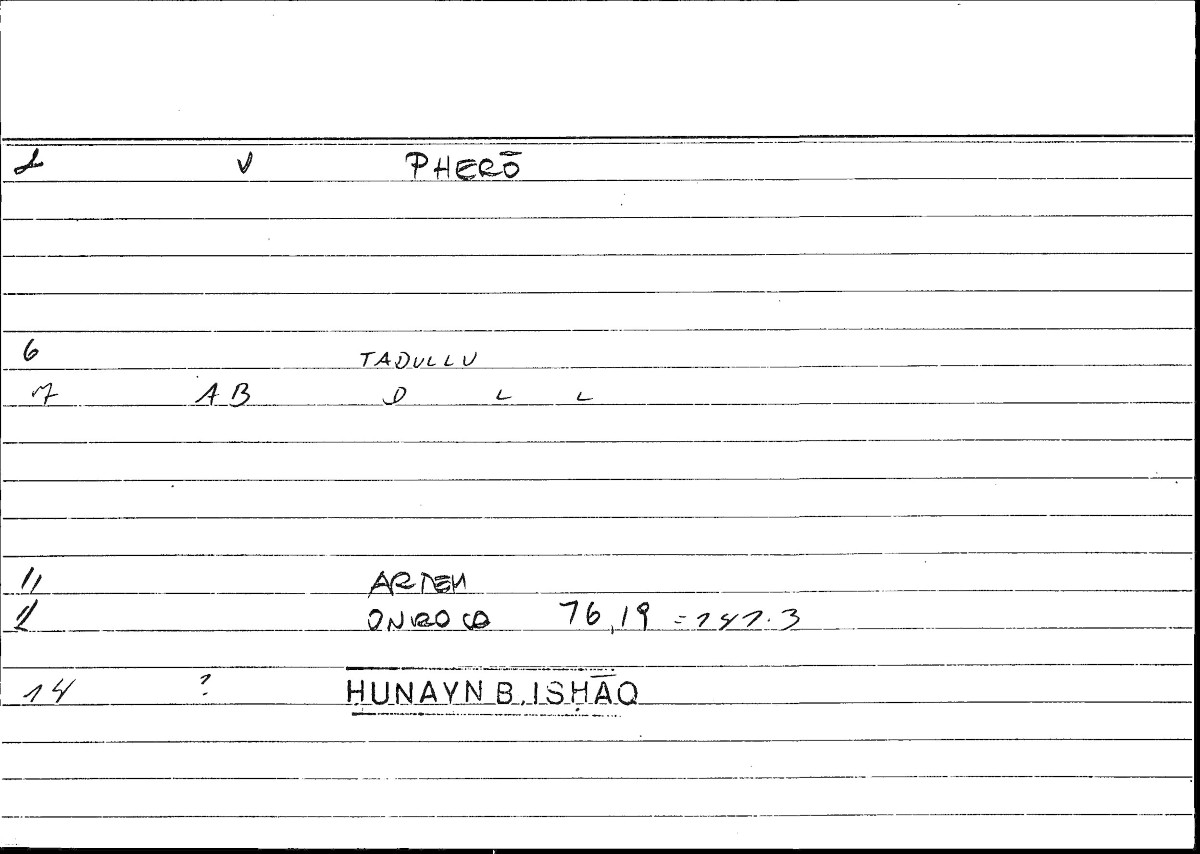 1 V PHERŌ
6 TADULLU
7 AB D L L
11 ARTEM
12 ONIROCR 76,19 = 141.3
14 ? ḤUNAYN B. ISḤĀQ